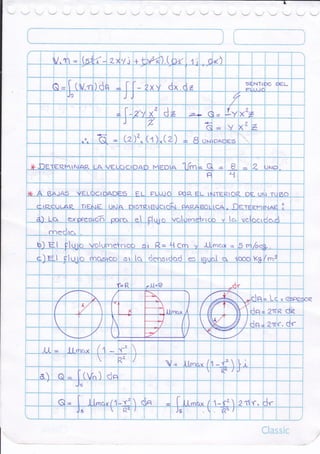 V.n = (5zi - 2xyj + tx²k).(0i, 1j, 0k)
Q = ∫s (V.n)dA = ∫∫ - 2xy dx dz
SENTIDO DEL FLUJO
= ∫ -2y x²/2 dz ⇒ Q = -yx²z
Q = yx²z
∴ Q = (2)².(1).(2) = 8 UNIDADES
* DETERMINAR LA VELOCIDAD MEDIA Vm = Q/A = 8/4 = 2 UNID.
* A BAJAS VELOCIDADES EL FLUJO POR EL INTERIOR DE UN TUBO
CIRCULAR TIENE UNA DISTRIBUCIÓN PARABOLICA. DETERMINAR:
a) La expresión para el flujo volumetrico y la velocidad
media.
b) El flujo volumetrico si R = 4 cm y umax = 5 m/seg.
c) El flujo masico si la densidad es igual a 1000 Kg/m³
r=R
u=0
dr
R
umax
dA = Lc × espesor
dA = 2πR dR
dA = 2πr.dr
u = umax (1 - r²/R²)
V = umax (1 - r²/R²) i
a) Q = ∫s (Vn) dA
Q = ∫s umax (1 - r²/R²) dA = ∫s umax (1 - r²/R²) 2πr.dr
Classic